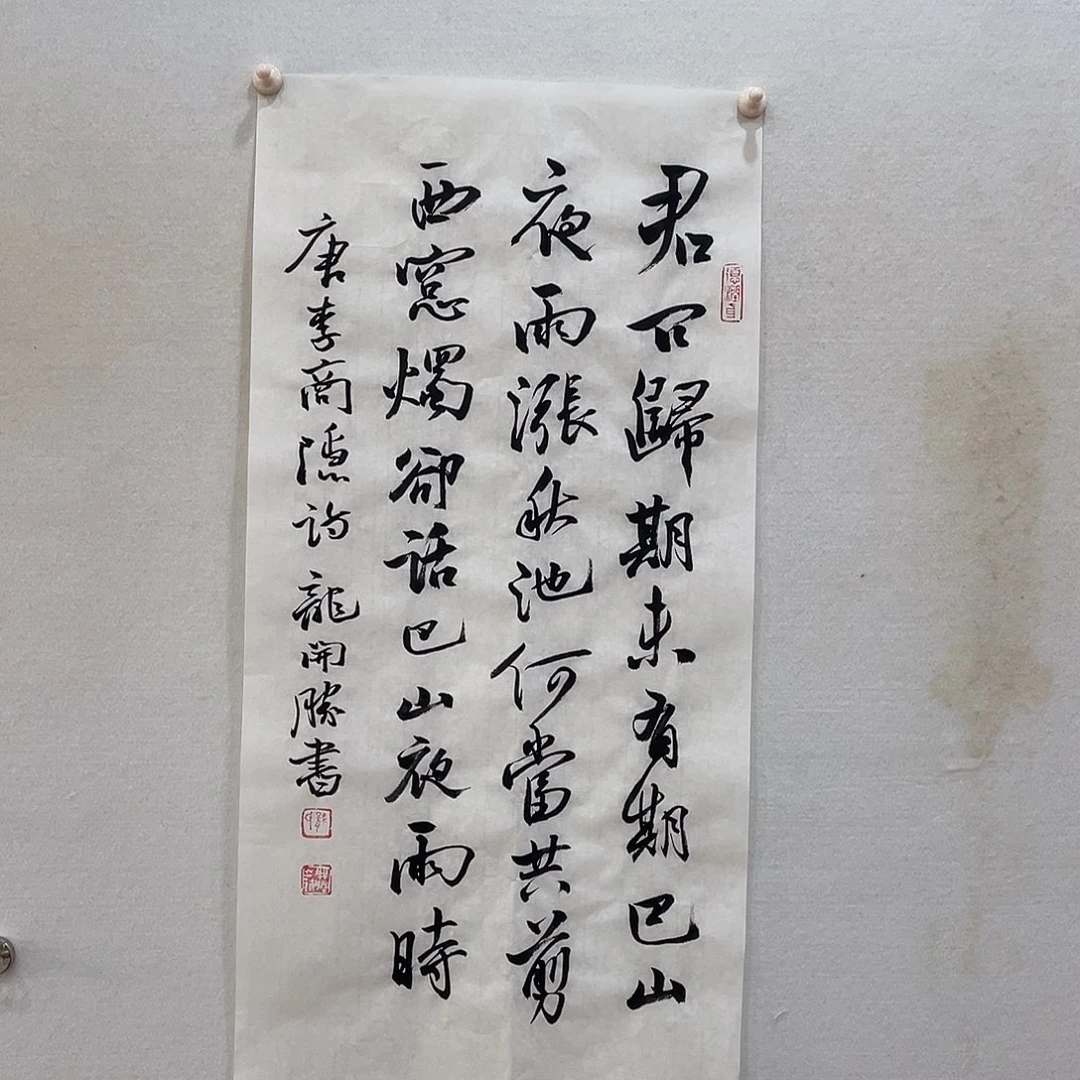 君问歸期未有期巴山
夜雨漲秋池何當共剪
西窓燭卻話巴山夜雨時
唐李商隱詩 龍開勝書